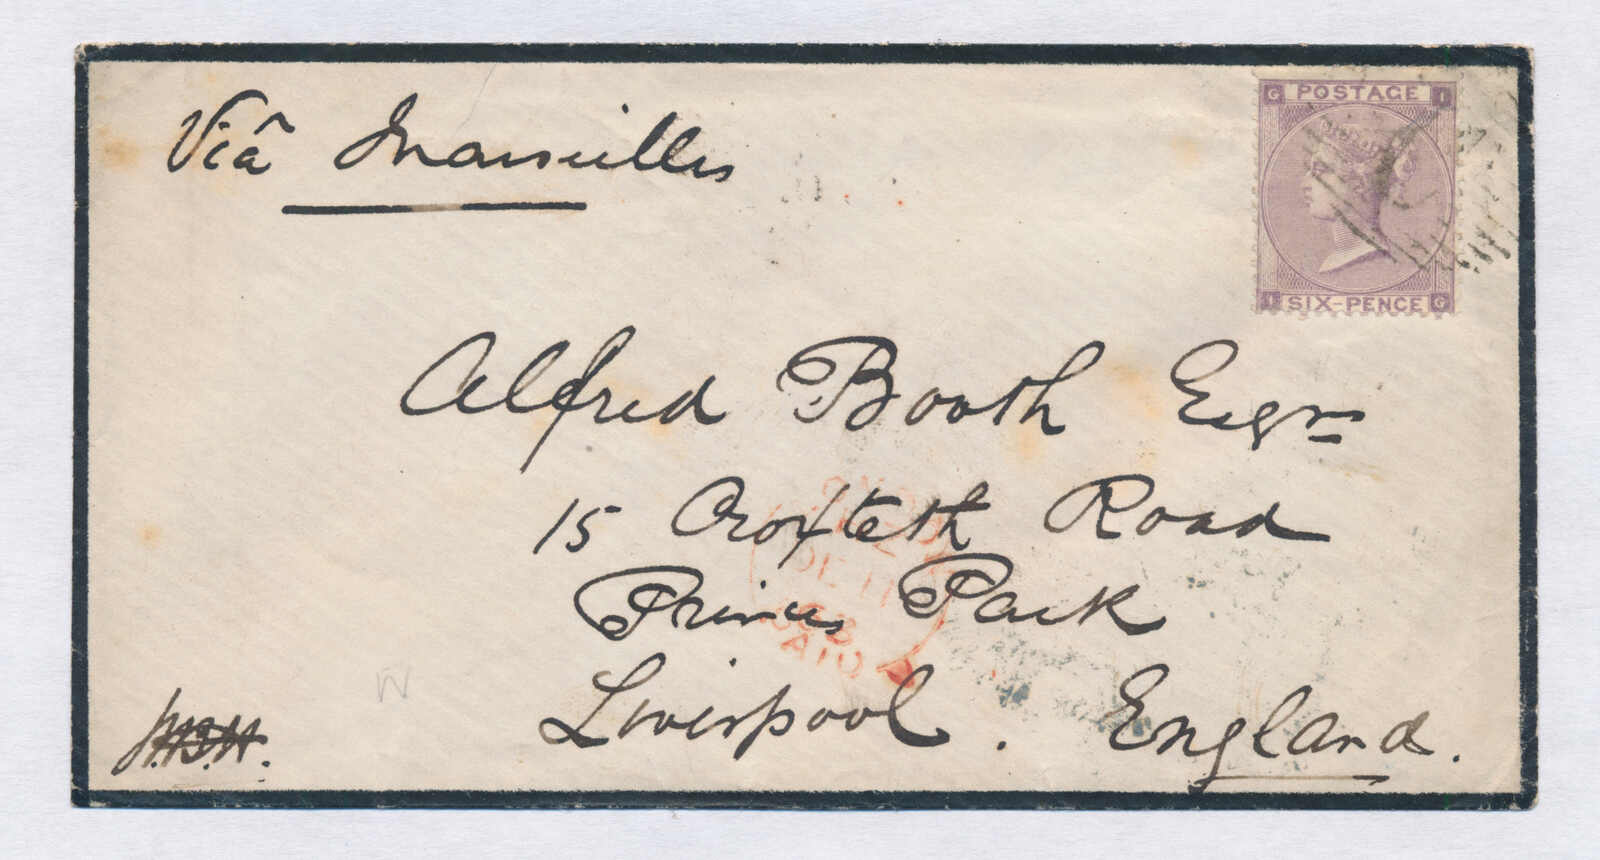 Viâ Marseilles
G POSTAGE I
I SIX-PENCE G
Alfred Booth Esqre
15 Croxteth Road
Princes Park
Liverpool. England.